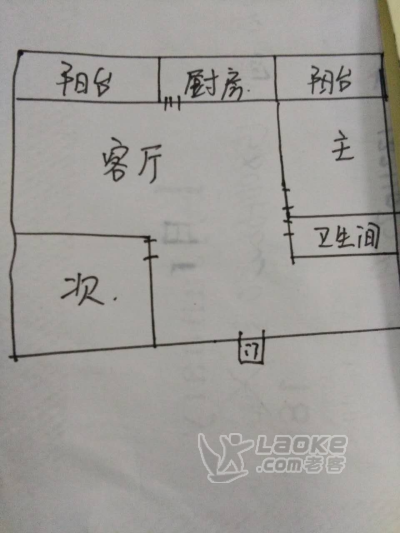 阳台
厨房
阳台
客厅
主
卫生间
次
门
LAOKE
.com老客